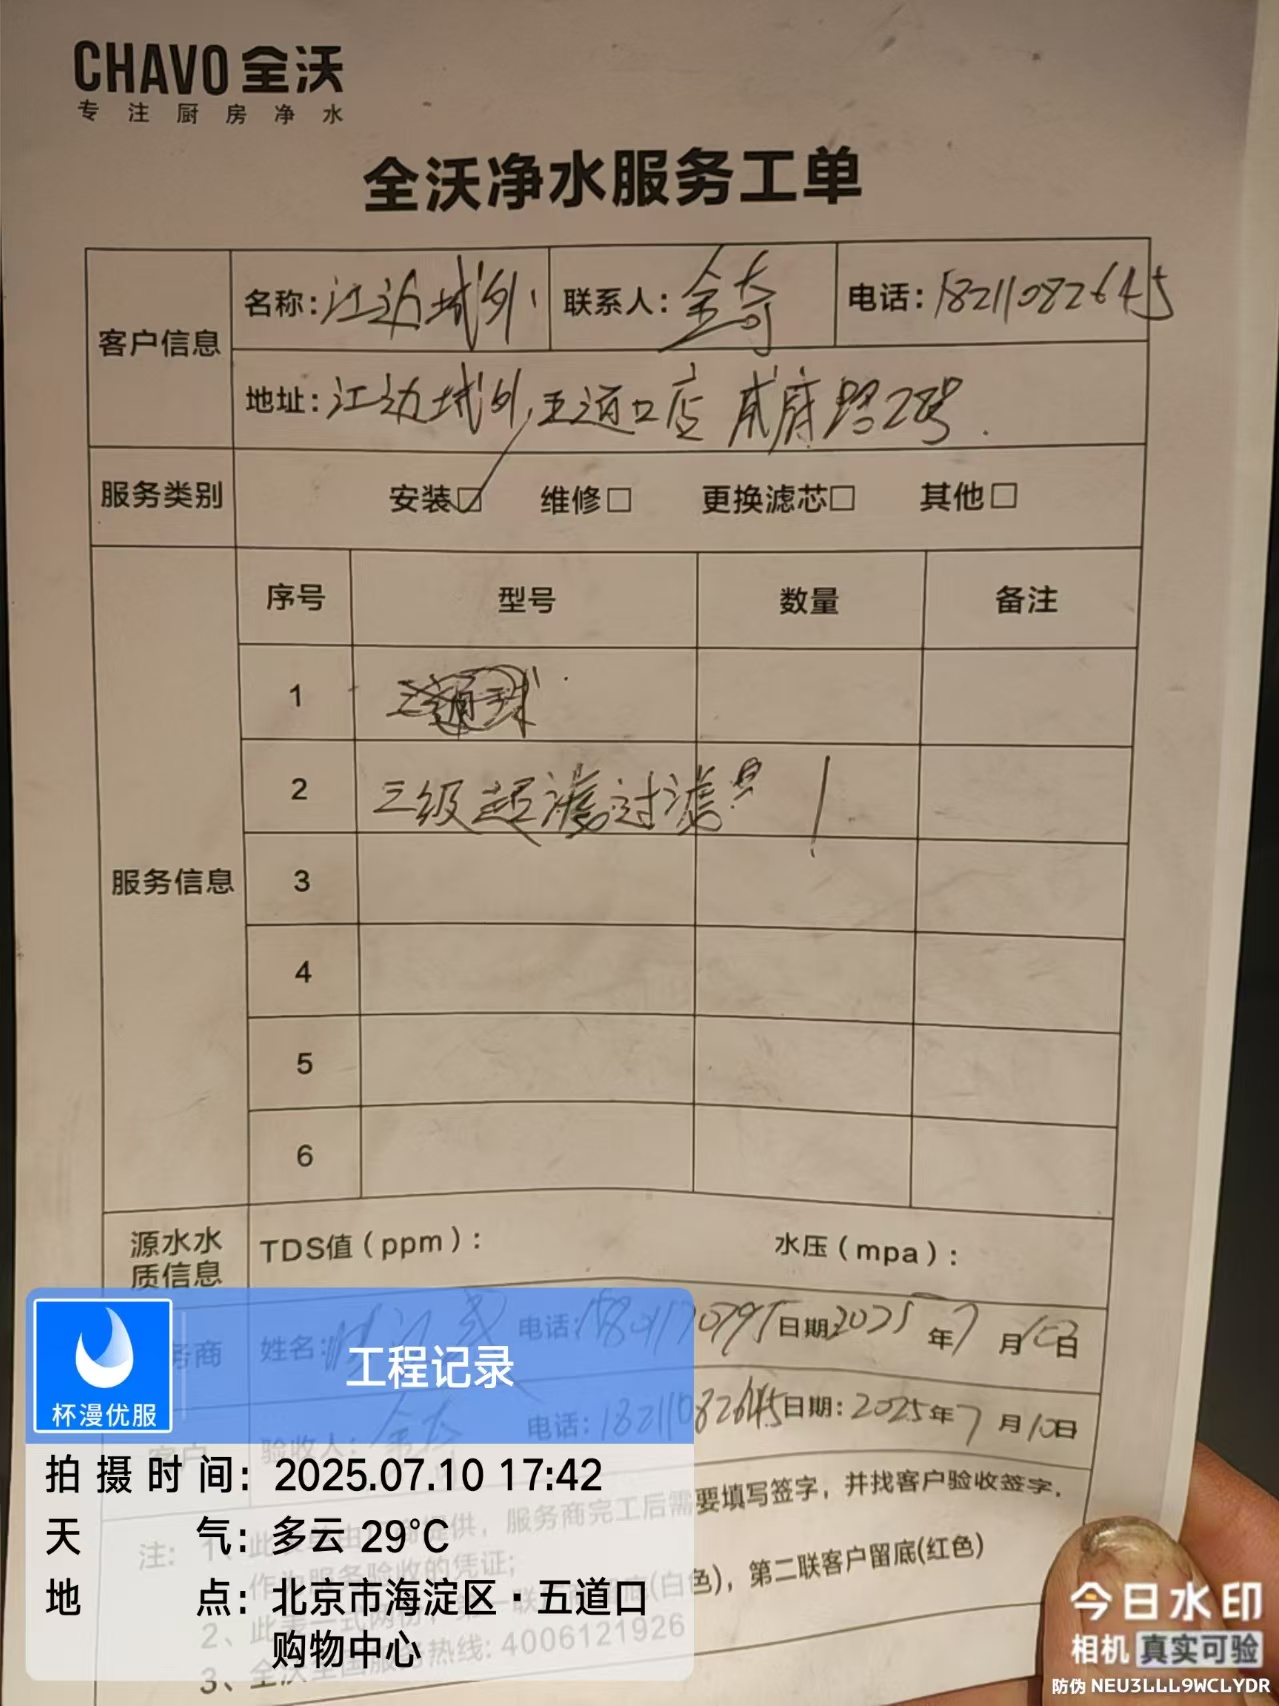 CHAVO 全沃
专注厨房净水
全沃净水服务工单
客户信息
名称:江边城外 联系人:金奇 电话:18211082645
地址:江边城外五道口店 成府路28号.
服务类别 安装☑ 维修□ 更换滤芯□ 其他□
服务信息
序号 型号 数量 备注
1
2 三级超滤过滤 1
3
4
5
6
源水水质信息 TDS值(ppm): 水压(mpa):
务商 姓名: 电话:15801170795 日期2025年7月10日
客户 验收人:金奇 电话:18211082645 日期:2025年7月10日
注: 1、此 由 提供,服务商完工后需要填写签字,并找客户验收签字,
作为服务验收的凭证;
2、此表一式两份, 第一联 留底(白色),第二联客户留底(红色)
3、全沃全国服务热线:4006121926
杯漫优服
工程记录
拍摄时间:2025.07.10 17:42
天气:多云 29℃
地点:北京市海淀区·五道口
购物中心
今日水印
相机 真实可验
防伪 NEU3LLL9WCLYDR